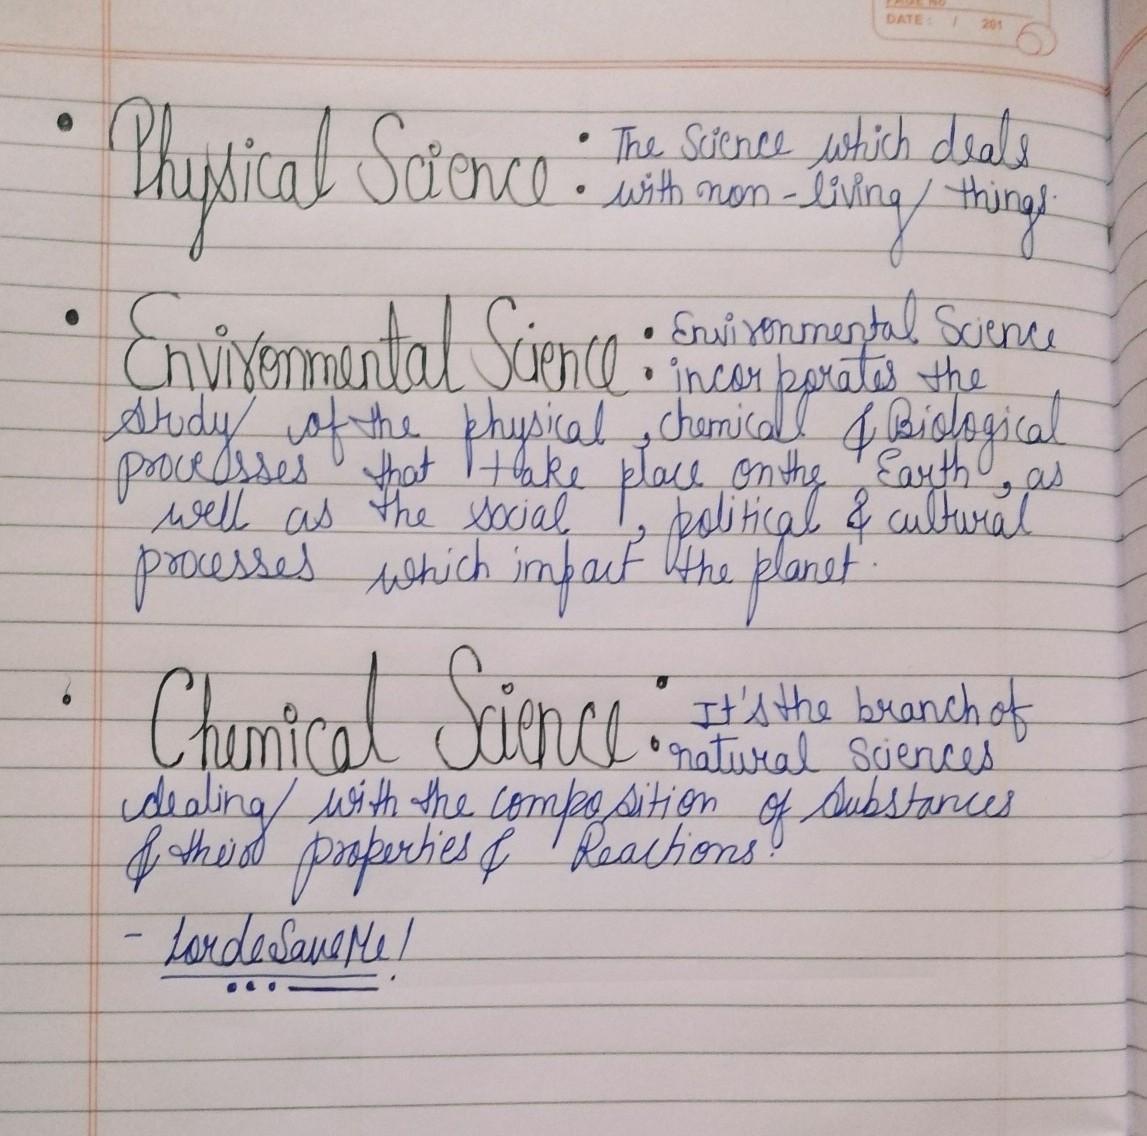 PAGE NO
DATE : / 201
6
• Physical Science : The Science which deals
with non-living things.
• Environmental Science : Environmental Science
incorporates the
study of the physical, chemical & Biological
processes that take place on the Earth, as
well as the social, political & cultural
processes which impact the planet.
• Chemical Science : It's the branch of
natural Sciences
dealing with the composition of Substances
& their properties & Reactions.
- LordeSaveMe!